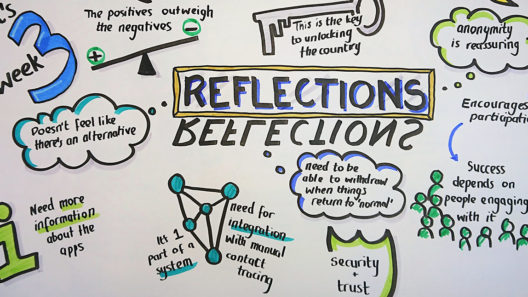 's
week
3
The positives outweigh
the negatives
+
-
This is the key
to unlocking
the country
anonymity
is reassuring
REFLECTIONS
REFLECTIONS
Doesn't feel like
there's an alternative
Encourages
participati
need to be
able to withdraw
when things
return to 'normal'
Success
depends on
people engaging
with it
i
Need more
information
about the
apps
It's 1
part of a
system
need for
integration
with manual
contact
tracing
Security
+
trust